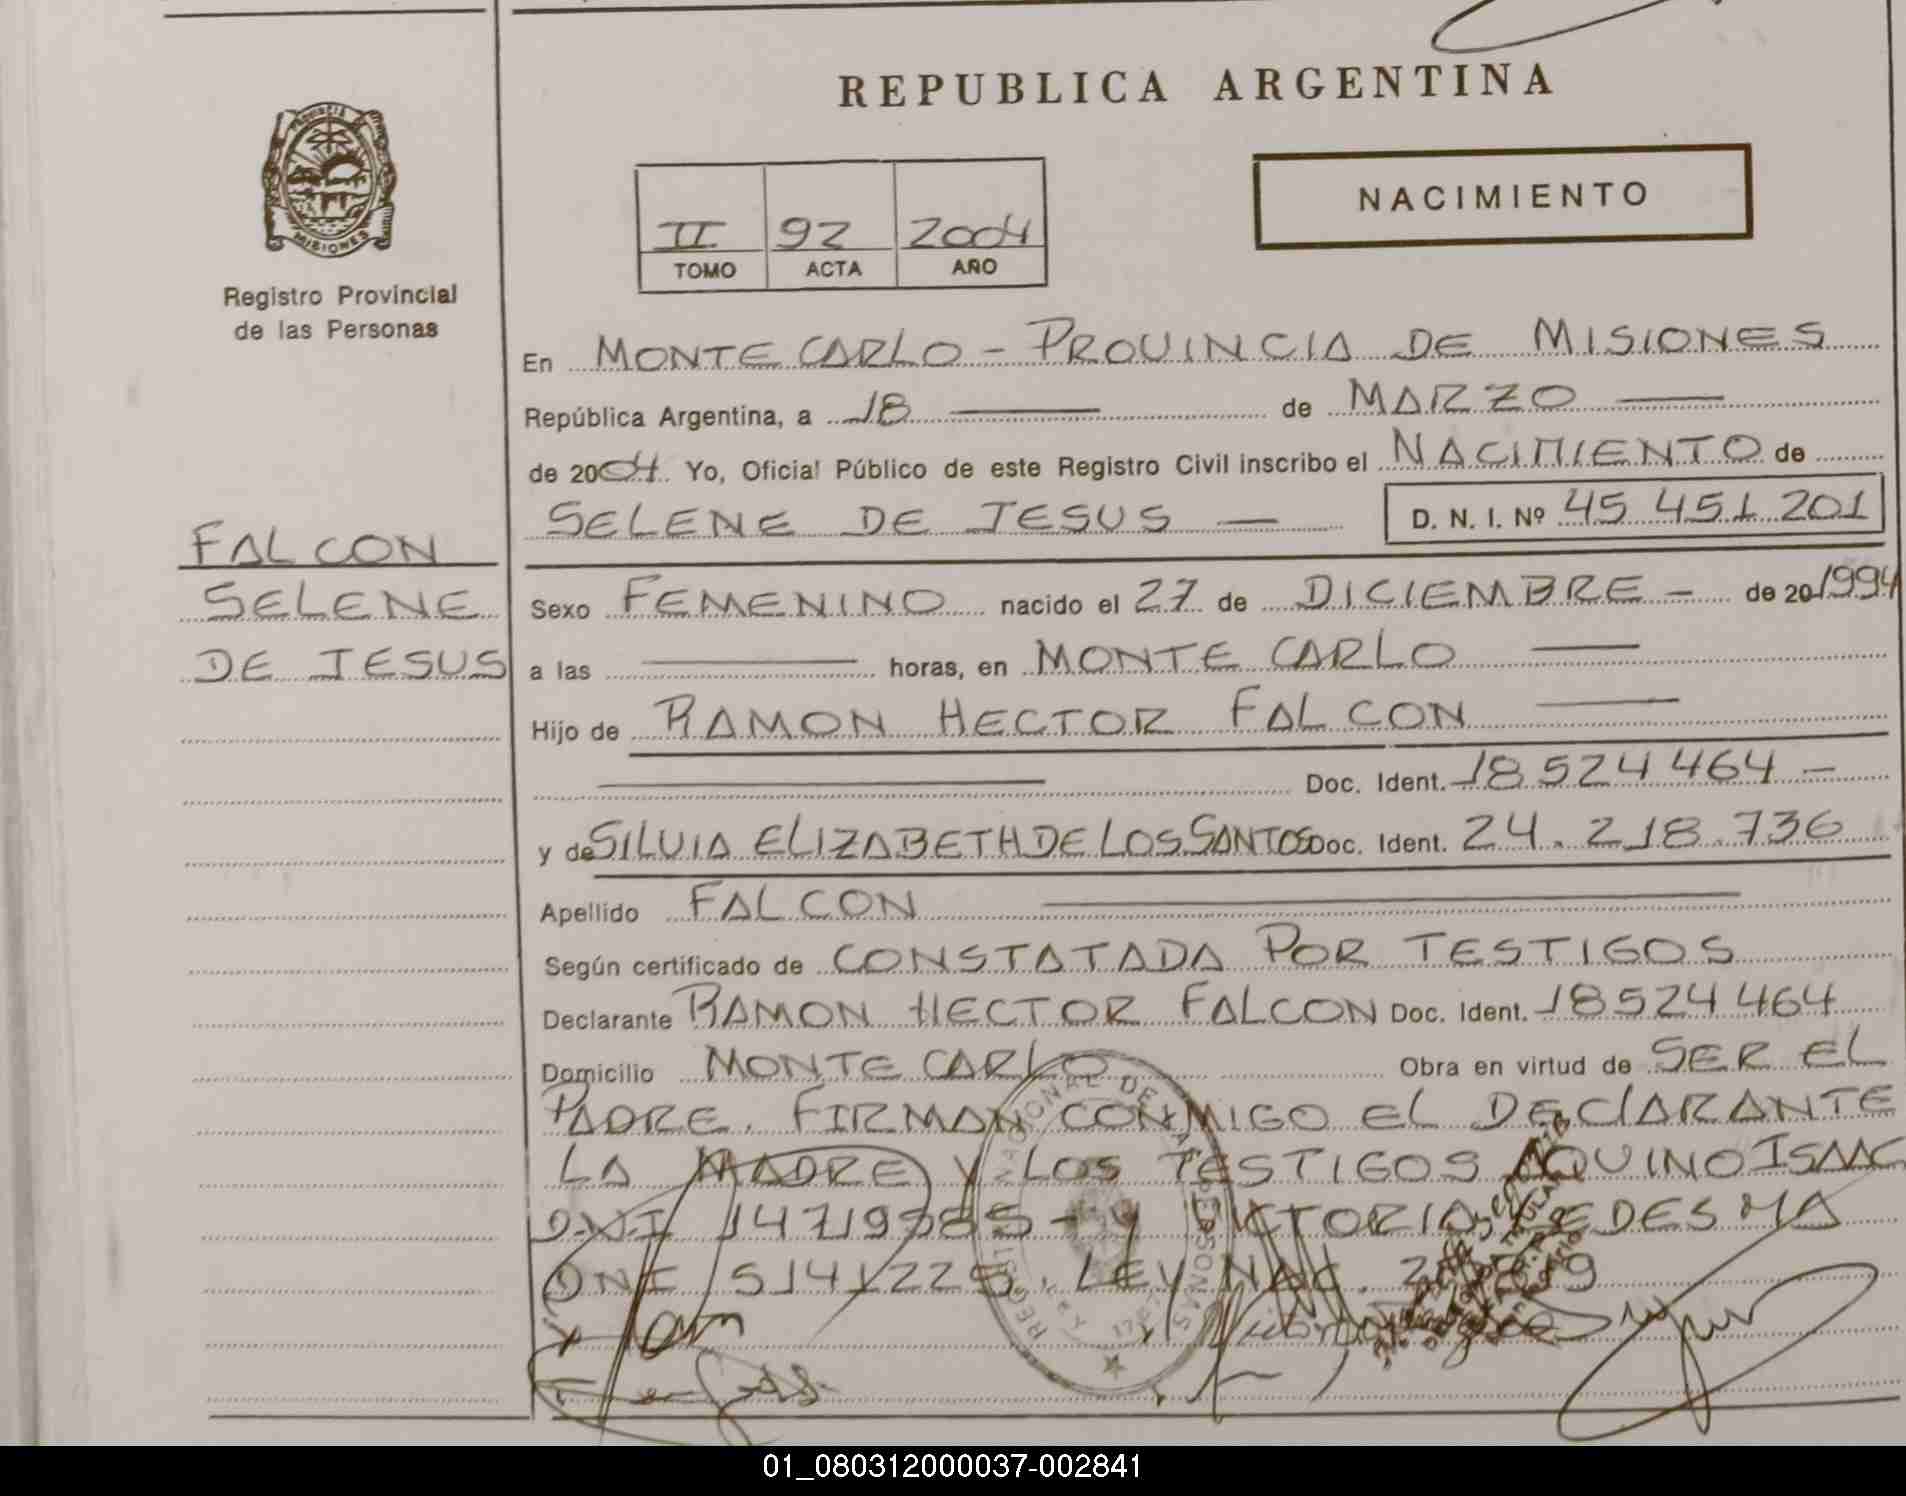 REPUBLICA ARGENTINA
PROVINCIA
MISIONES
Registro Provincial
de las Personas
NACIMIENTO
II 92 2004
TOMO ACTA AÑO
En MONTE CARLO - PROVINCIA DE MISIONES
República Argentina, a 18 de MARZO
de 2004 Yo, Oficial Público de este Registro Civil inscribo el NACIMIENTO de
SELENE DE JESUS — D. N. I. Nº 45 451 201
FALCON
SELENE
DE JESUS
Sexo FEMENINO nacido el 27 de DICIEMBRE - de 20 1994
a las horas, en MONTE CARLO
Hijo de RAMON HECTOR FALCON
Doc. Ident. 18524464 -
y de SILVIA ELIZABETH DE LOS SANTOS Doc. Ident. 24.218.736
Apellido FALCON
Según certificado de CONSTATADA POR TESTIGOS
Declarante RAMON HECTOR FALCON Doc. Ident. 18524464
Domicilio MONTE CARLO Obra en virtud de SER EL
PADRE. FIRMAN CONMIGO EL DECLARANTE
LA MADRE Y LOS TESTIGOS AQUINO ISAAC
DNI 14719585 - Y VICTORIA LEDESMA
DNI 5141225. LEY NAC.
REGISTRO NACIONAL DE LAS PERSONAS
01_080312000037-002841